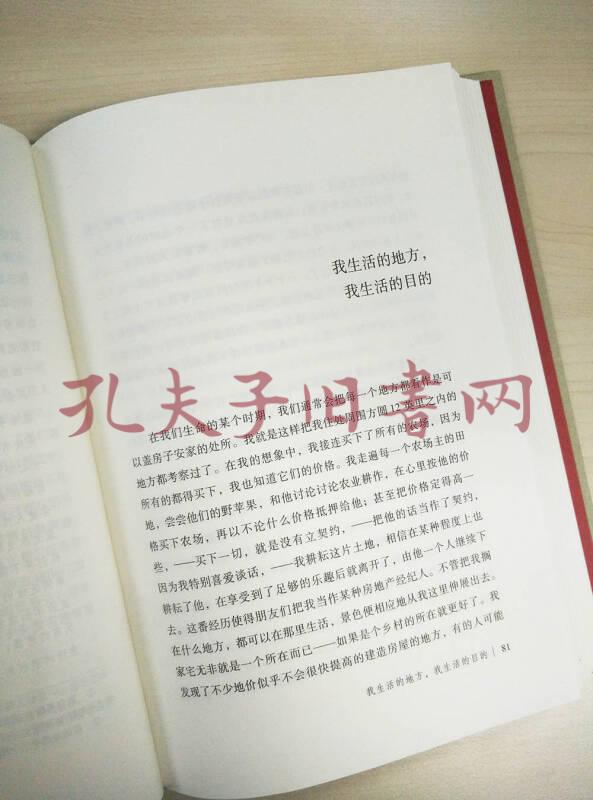 我生活的地方，
我生活的目的
在我们生命的某个时期，我们通常会把每一个地方都看作是可
以盖房子安家的处所。我就是这样把我住处周围方圆12英里之内的
地方都考察过了。在我的想象中，我接连买下了所有的农场，因为
所有的都得买下，我也知道它们的价格。我走遍每一个农场主的田
地，尝尝他们的野苹果，和他讨论讨论农业耕作，在心里按他的价
格买下农场，再以不论什么价格抵押给他；甚至把价格定得高一
些，——买下一切，就是没有立契约，——把他的话当作了契约，
因为我特别喜爱谈话，——我耕耘这片土地，相信在某种程度上也
耕耘了他，在享受到了足够的乐趣后就离开了，由他一个人继续下
去。这番经历使得朋友们把我当作某种房地产经纪人。不管把我搁
在什么地方，都可以在那里生活，景色便相应地从我这里伸展出去。
家宅无非就是一个所在而已——如果是个乡村的所在就更好了。我
发现了不少地价似乎不会很快提高的建造房屋的地方，有的人可能
我生活的地方，我生活的目的 | 81
孔夫子旧书网